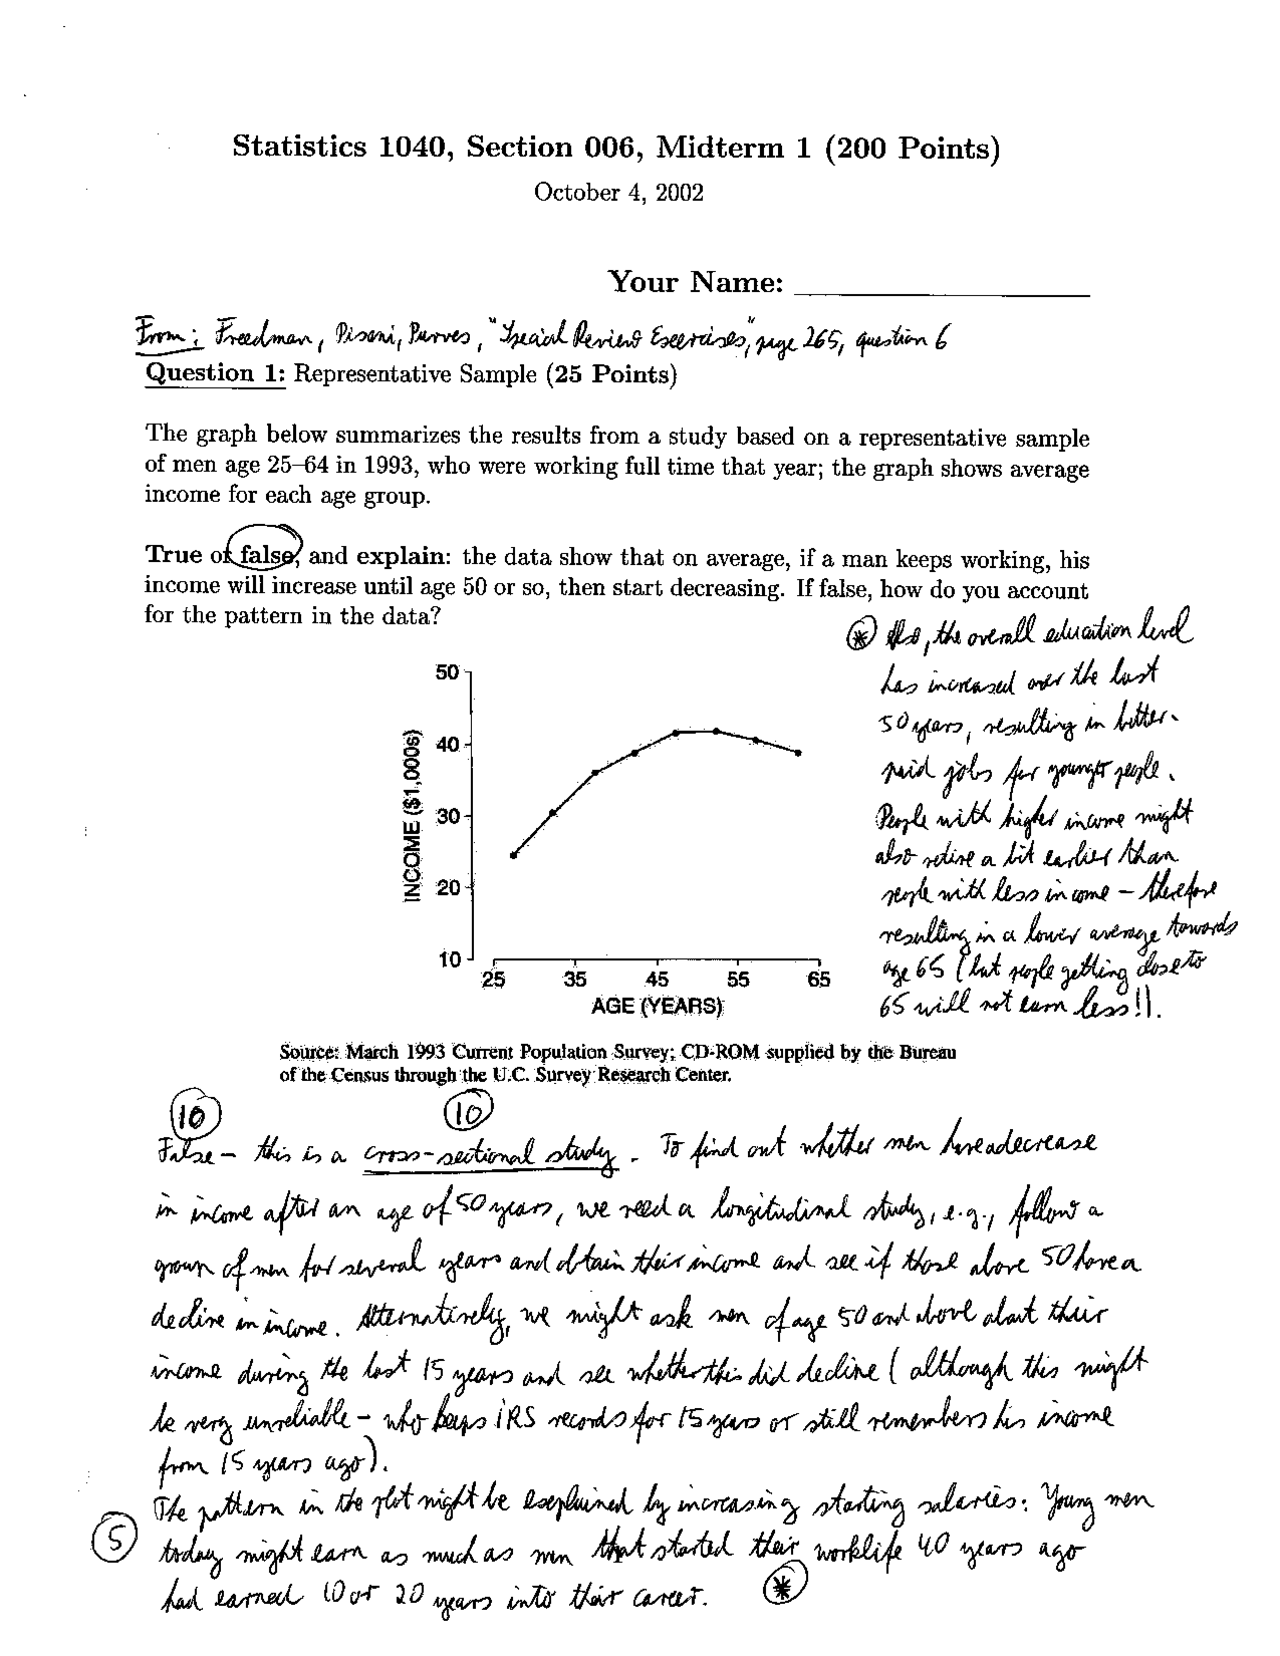 Statistics 1040, Section 006, Midterm 1 (200 Points)
October 4, 2002
Your Name:
From: Freedman, Pisani, Purves, "Special Review Exercises", page 265, question 6
Question 1: Representative Sample (25 Points)
The graph below summarizes the results from a study based on a representative sample
of men age 25–64 in 1993, who were working full time that year; the graph shows average
income for each age group.
True or false, and explain: the data show that on average, if a man keeps working, his
income will increase until age 50 or so, then start decreasing. If false, how do you account
for the pattern in the data?
* Also, the overall education level
has increased over the last
50 years, resulting in better-
paid jobs for younger people.
People with higher income might
also retire a bit earlier than
people with less income – therefore
resulting in a lower average towards
age 65 (but people getting close to
65 will not earn less!).
50
40
30
20
10
INCOME ($1,000s)
25 35 45 55 65
AGE (YEARS)
Source: March 1993 Current Population Survey; CD-ROM supplied by the Bureau
of the Census through the U.C. Survey Research Center.
10 10
False – this is a cross-sectional study. To find out whether men have a decrease
in income after an age of 50 years, we need a longitudinal study, e.g., follow a
group of men for several years and obtain their income and see if those above 50 have a
decline in income. Alternatively, we might ask men of age 50 and above about their
income during the last 15 years and see whether this did decline (although this might
be very unreliable – who keeps IRS records for 15 years or still remembers his income
from 15 years ago).
The pattern in the plot might be explained by increasing starting salaries: Young men
5
today might earn as much as men that started their worklife 40 years ago
had earned 10 or 20 years into their career. *